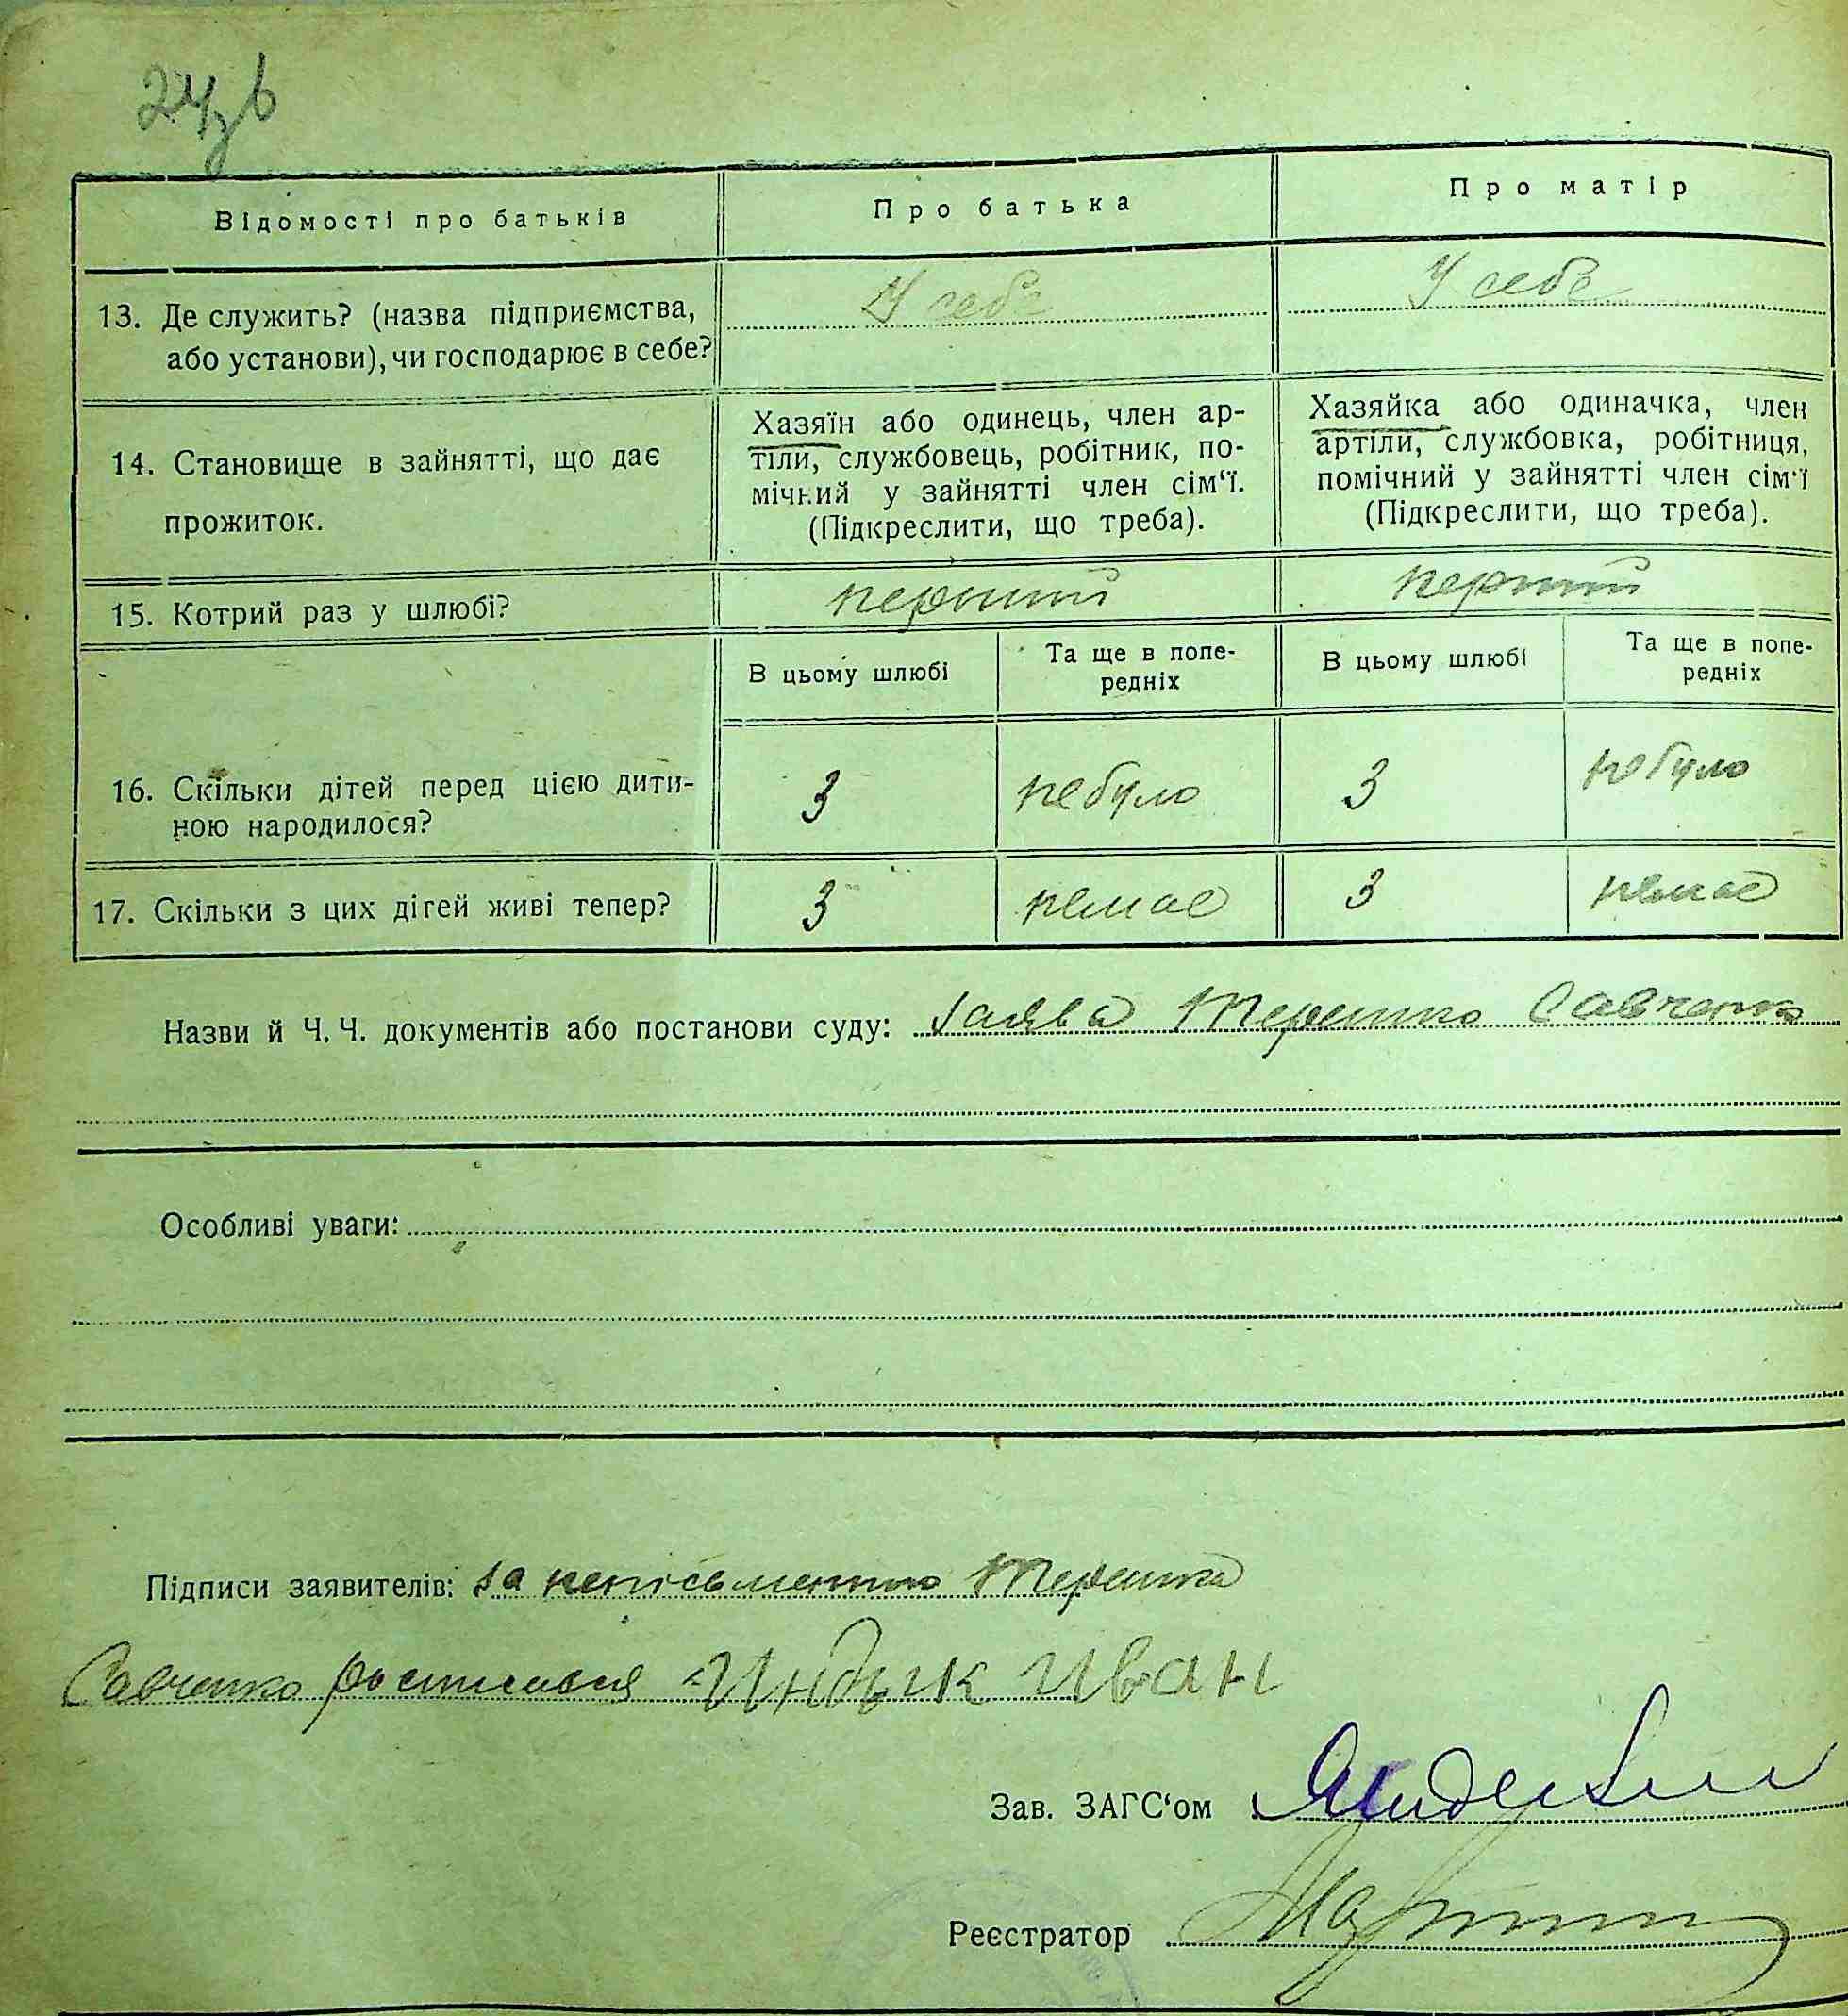 24зв
Відомості про батьків
Про батька
Про матір
13. Де служить? (назва підприємства,
або установи), чи господарює в себе?
У себе
У себе
14. Становище в зайнятті, що дає
прожиток.
Хазяїн або одинець, член ар-
тіли, службовець, робітник, по-
мічний у зайнятті член сім‘ї.
(Підкреслити, що треба).
Хазяйка або одиначка, член
артіли, службовка, робітниця,
помічний у зайнятті член сім‘ї
(Підкреслити, що треба).
15. Котрий раз у шлюбі?
перший
перший
В цьому шлюбі
Та ще в попе-
редніх
В цьому шлюбі
Та ще в попе-
редніх
16. Скільки дітей перед цією дити-
ною народилося?
3
не було
3
не було
17. Скільки з цих дітей живі тепер?
3
немає
3
немає
Назви й Ч. Ч. документів або постанови суду: заява Терешко Савченка
Особливі уваги:
Підписи заявителів: за неписьменного Терешка
Савченко росписався Индик Иван
Зав. ЗАГС‘ом
Реєстратор